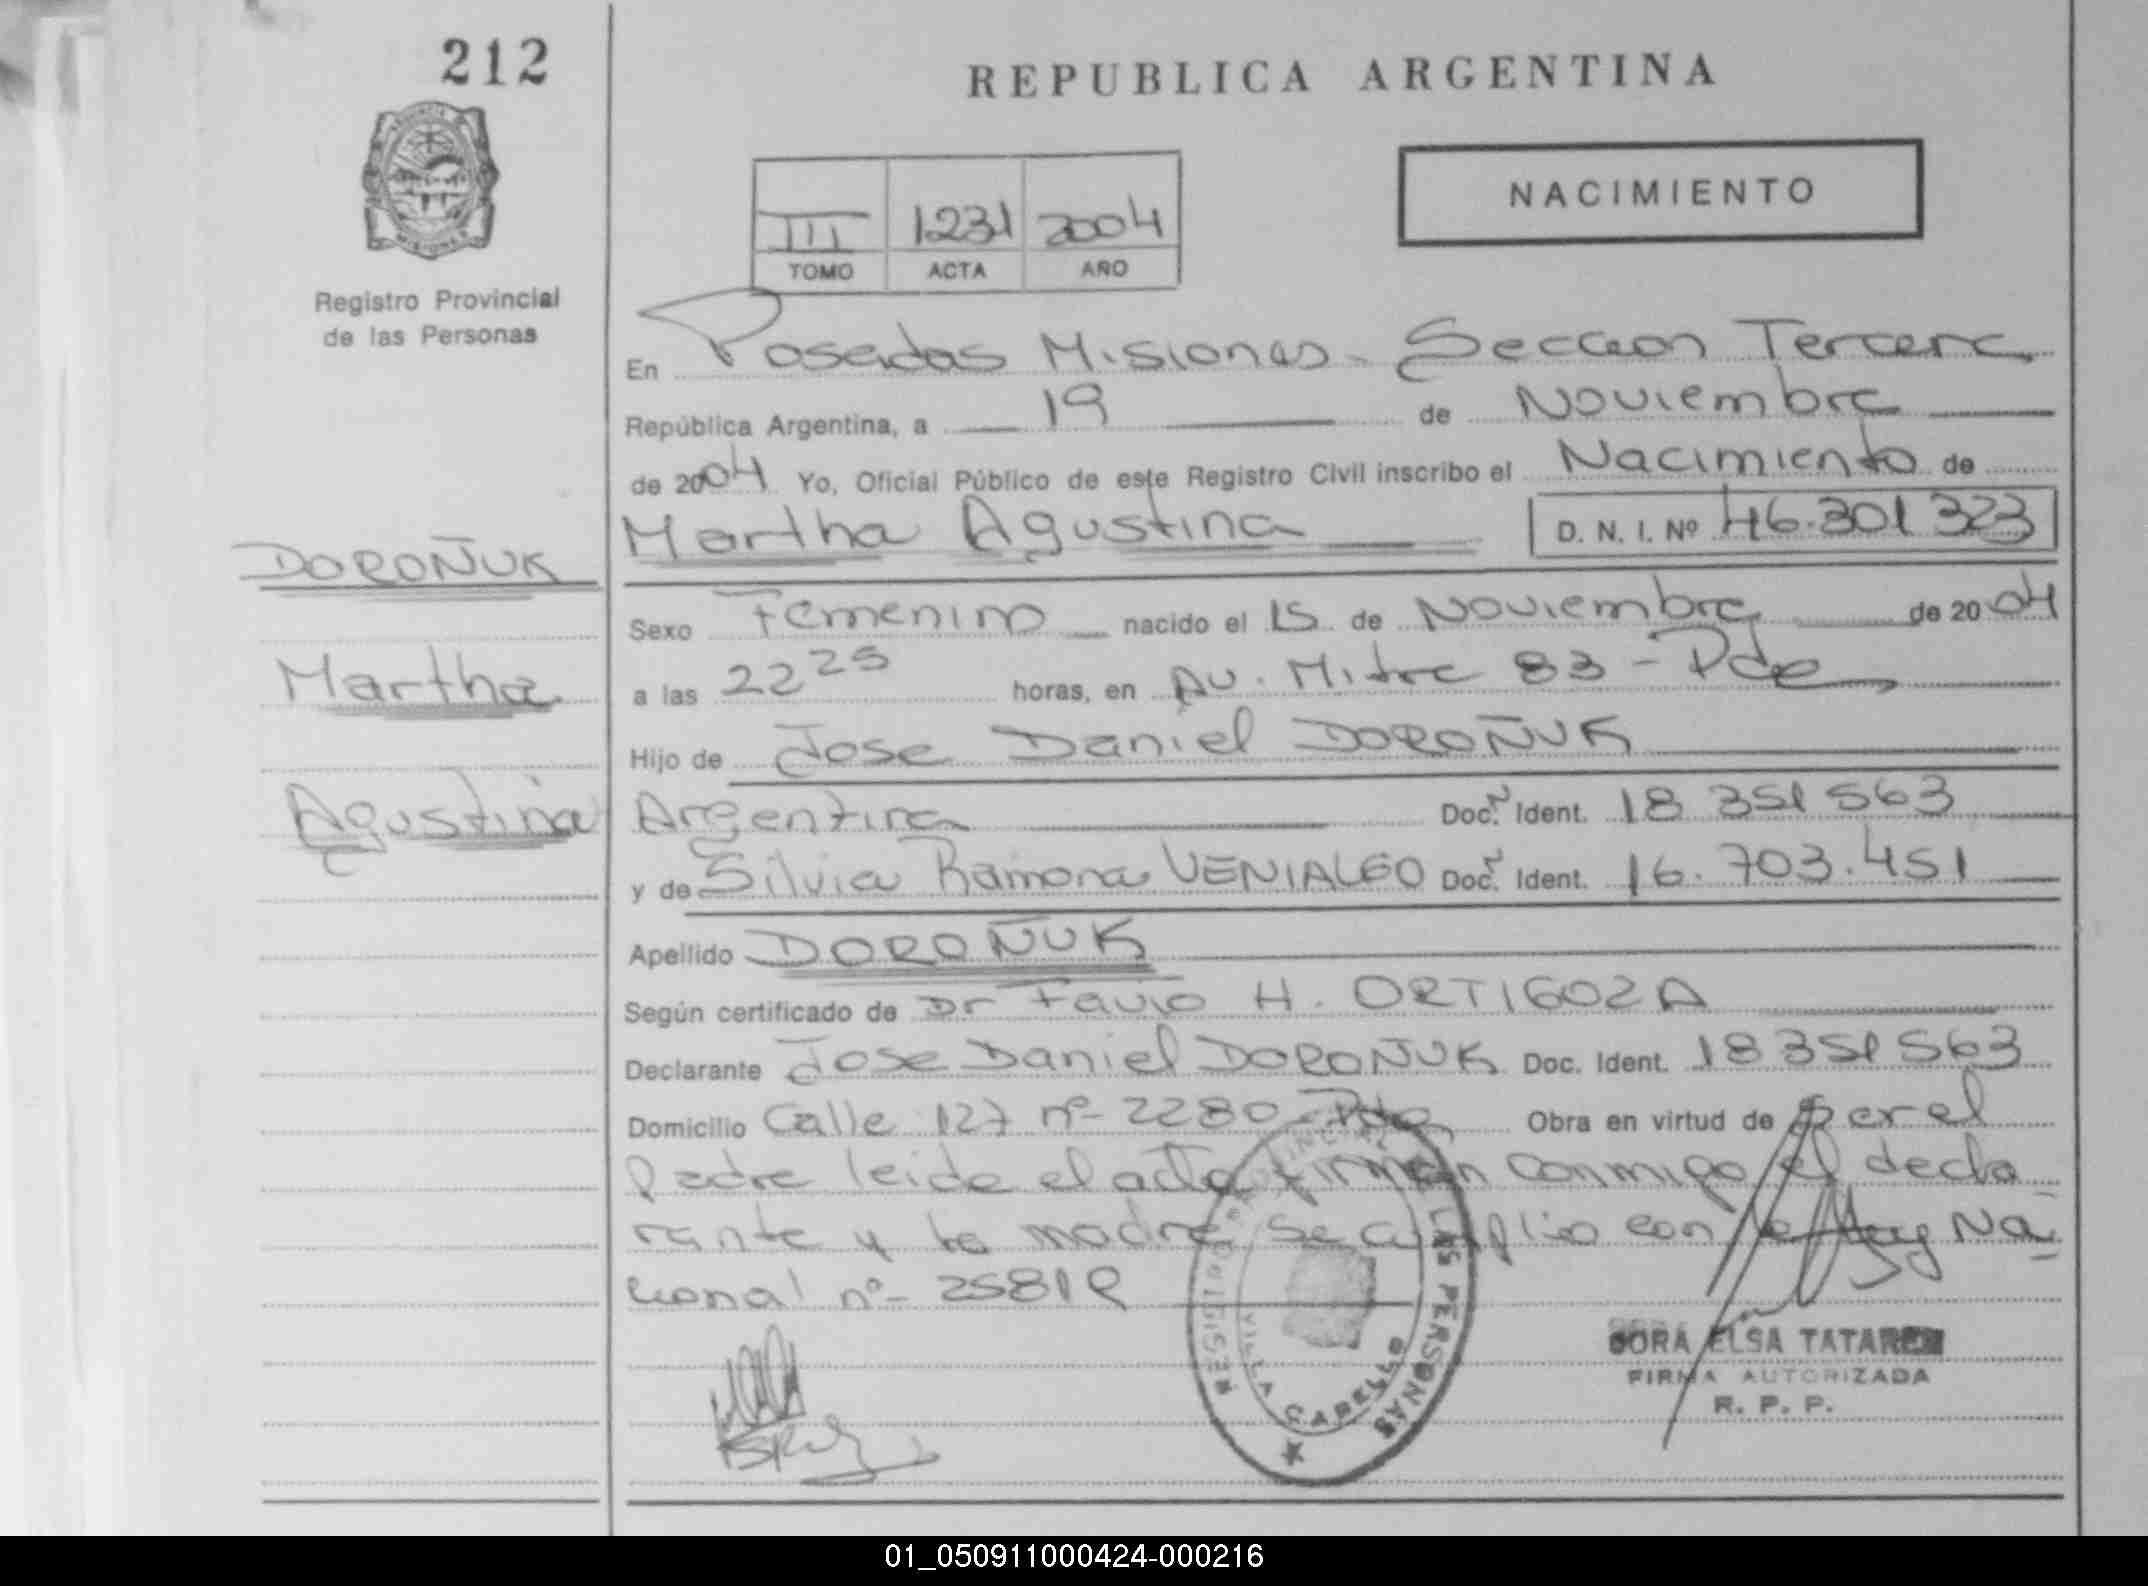 212
REPUBLICA ARGENTINA
NACIMIENTO
III 1231 2004
TOMO ACTA AÑO
Registro Provincial
de las Personas
En Posadas Misiones - Seccion Tercera
República Argentina, a 19 de Noviembre
de 2004 Yo, Oficial Público de este Registro Civil inscribo el Nacimiento de
Martha Agustina D. N. I. Nº 46.301323
DOROÑUK
Martha
Agustina
Sexo Femenino nacido el 15 de Noviembre de 2004
a las 22 25 horas, en Av. Mitre 83 - Pdas
Hijo de Jose Daniel DOROÑUK
Argentina Doc. Ident. 18 351 563
y de Silvia Ramona VENIALGO Doc. Ident. 16.703.451
Apellido DOROÑUK
Según certificado de Dr Favio H. ORTIGOZA
Declarante Jose Daniel DOROÑUK Doc. Ident. 18 351 563
Domicilio Calle 127 nº 2280 - Pdas Obra en virtud de ser el
padre leida el acta firman conmigo el decla
rante y la madre se cumplio con la Ley Na
cional nº
REGISTRO PROVINCIAL DE LAS PERSONAS
VILLA CABELLO
ELSA
FIRMA AUTORIZADA
R. P. P.
01_050911000424-000216